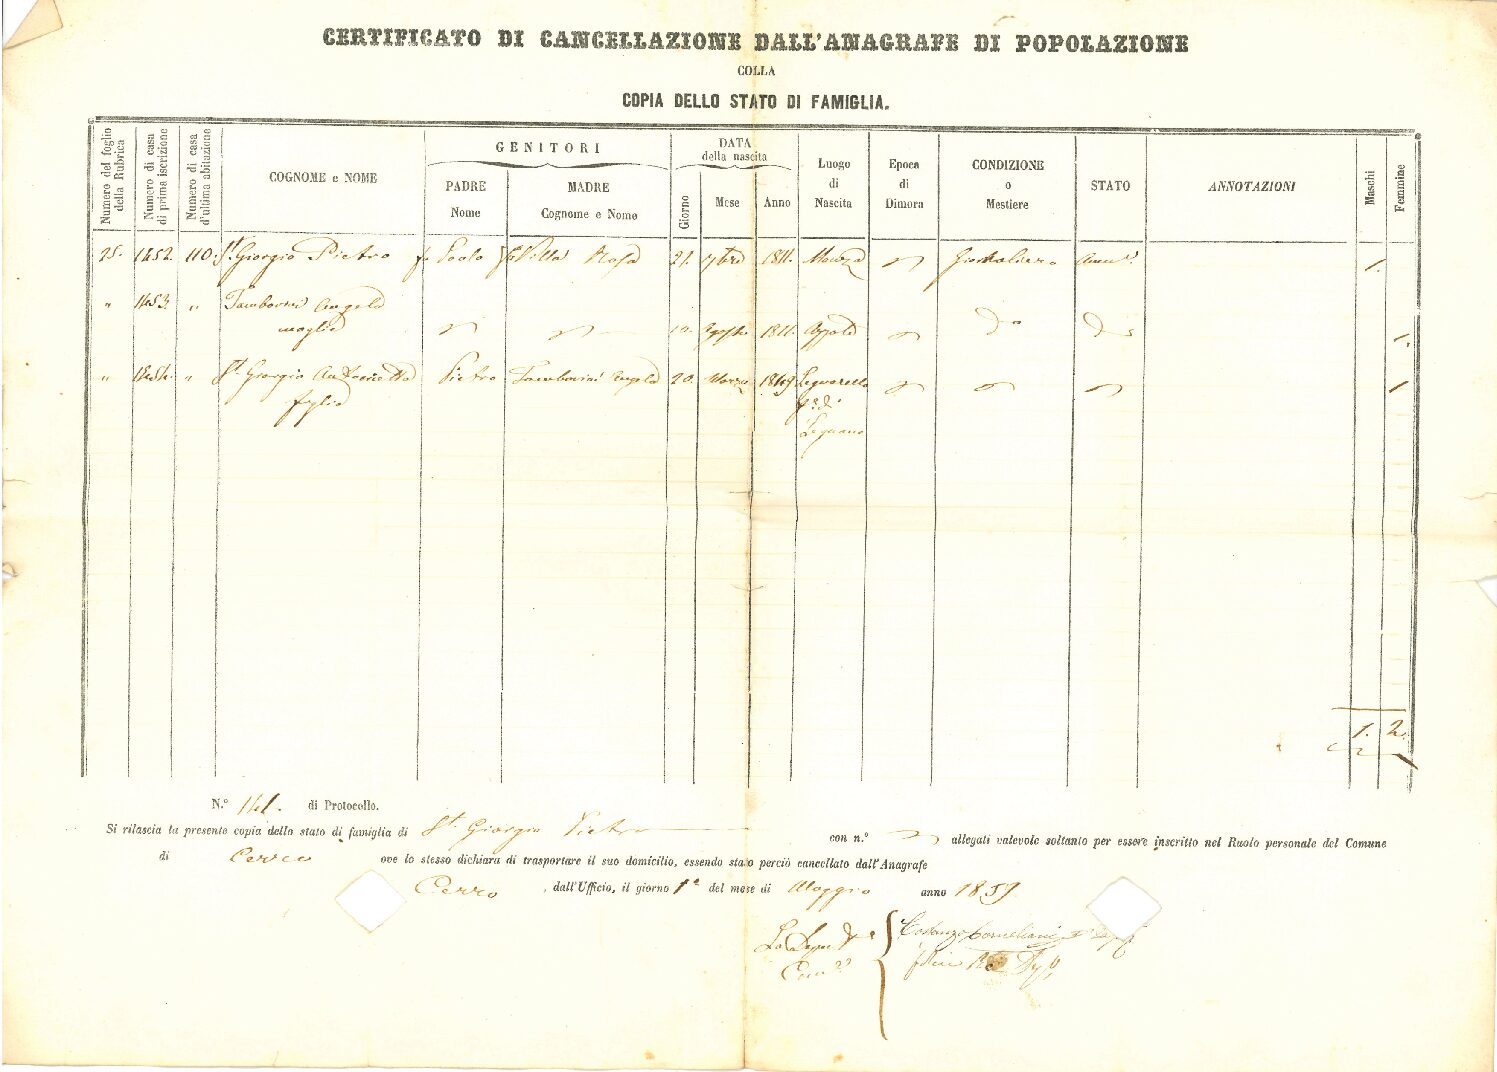 CERTIFICATO DI CANCELLAZIONE DALL'ANAGRAFE DI POPOLAZIONE
COLLA
COPIA DELLO STATO DI FAMIGLIA.
Numero del foglio della Rubrica
Numero di casa di prima iscrizione
Numero di casa d'ultima abitazione
COGNOME e NOME
GENITORI
PADRE
Nome
MADRE
Cognome e Nome
DATA
della nascita
Giorno
Mese
Anno
Luogo
di
Nascita
Epoca
di
Dimora
CONDIZIONE
o
Mestiere
STATO
ANNOTAZIONI
Maschi
Femmine
25. 1452. 110. St. Giorgio Pietro fu Paolo Villa Rosa 21. 7bre 1811. Monza 1.
" 1453. " Tamborini Angela
moglie 1811. 1.
" 1454. " St. Giorgio Antonietta Pietro Tamborini Angela 20. Marzo 1849 Legnarello 1
figlia
Legnano
1. 2.
N.º 141. di Protocollo.
Si rilascia la presente copia dello stato di famiglia di St. Giorgio Pietro con n.º allegati valevole soltanto per essere inscritto nel Ruolo personale del Comune
di ove lo stesso dichiara di trasportare il suo domicilio, essendo stato perciò cancellato dall'Anagrafe
Cerro, dall'Ufficio, il giorno 1º del mese di Maggio anno 1859
La